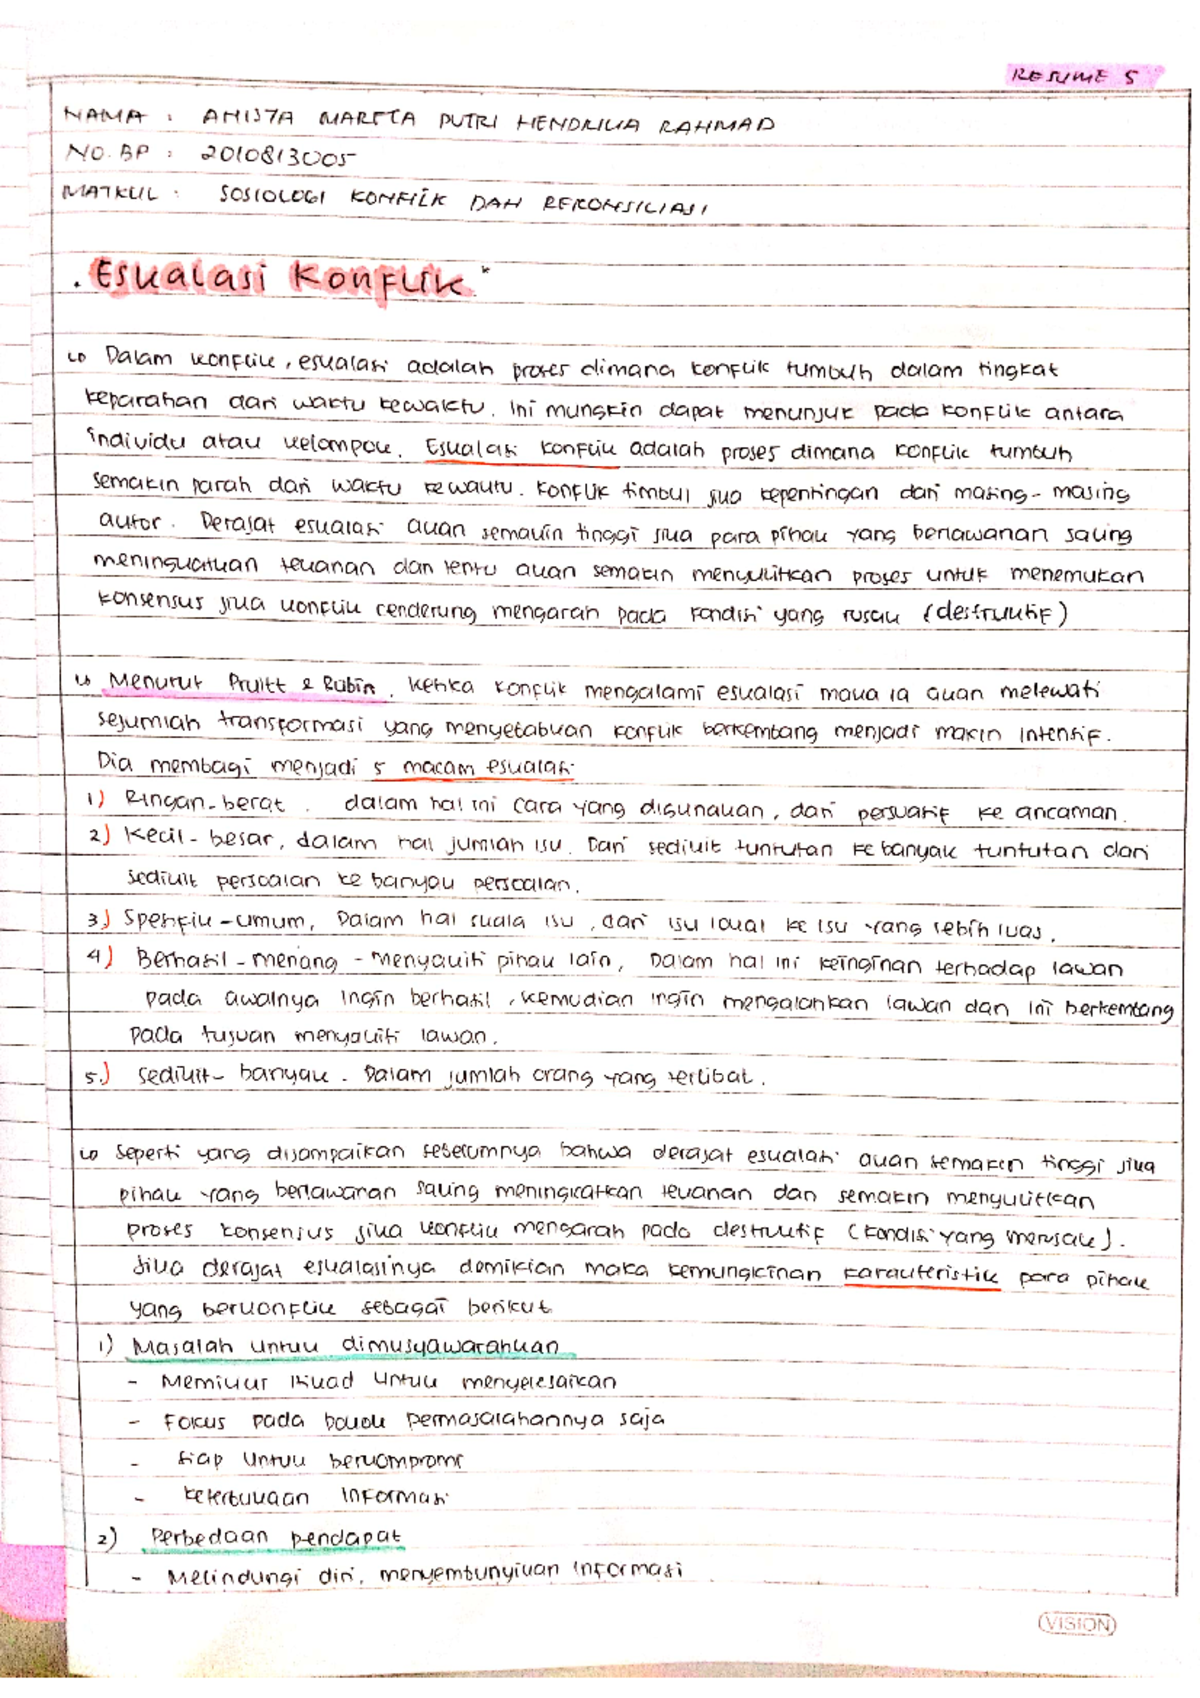 RESUME 5
NAMA : ANISTA MARETA PUTRI HENDRIKA RAHMAD
NO. BP : 2010813005
MATKUL : SOSIOLOGI KONFLIK DAN REKONSILIASI
. Eskalasi Konflik *
Dalam konflik, eskalasi adalah proses dimana konflik tumbuh dalam tingkat
keparahan dari waktu kewaktu. Ini mungkin dapat menunjuk pada konflik antara
individu atau kelompok. Eskalasi konflik adalah proses dimana konflik tumbuh
semakin parah dari waktu kewaktu. Konflik timbul jika kepentingan dari masing-masing
aktor. Derajat eskalasi akan semakin tinggi jika para pihak yang berlawanan saling
meningkatkan tekanan dan tentu akan semakin menyulitkan proses untuk menemukan
konsensus jika konflik cenderung mengarah pada kondisi yang rusak (destruktif)
Menurut Pruitt & Rubin, ketika konflik mengalami eskalasi maka ia akan melewati
sejumlah transformasi yang menyebabkan konflik berkembang menjadi makin intensif.
Dia membagi menjadi 5 macam eskalasi
1) Ringan-berat. dalam hal ini cara yang digunakan, dari persuasif ke ancaman.
2) Kecil-besar, dalam hal jumlah isu. Dari sedikit tuntutan ke banyak tuntutan dari
sedikit persoalan ke banyak persoalan.
3) Spesifik-umum, Dalam hal skala isu, dari isu lokal ke isu yang lebih luas.
4) Berhasil-menang-menyakiti pihak lain, Dalam hal ini keinginan terhadap lawan
pada awalnya ingin berhasil, kemudian ingin mengalahkan lawan dan ini berkembang
pada tujuan menyakiti lawan.
5.) sedikit-banyak. Dalam jumlah orang yang terlibat.
Seperti yang disampaikan sebelumnya bahwa derajat eskalasi akan semakin tinggi jika
pihak yang berlawanan saling meningkatkan tekanan dan semakin menyulitkan
proses konsensus jika konflik mengarah pada destruktif (kondisi yang merusak).
Jika derajat eskalasinya demikian maka kemungkinan karakteristik para pihak
yang berkonflik sebagai berikut
1) Masalah untuk dimusyawarahkan
- Memikur ikuad untuk menyelesaikan
- Fokus pada pokok permasalahannya saja
- Siap untuk berkompromi
- Keterbukaan informasi
2) Perbedaan pendapat
- Melindungi diri, menyembunyikan informasi
VISION